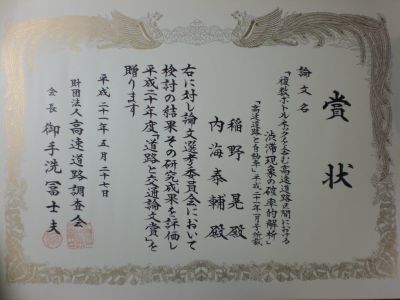 賞状
論文名
「複数ボトルネックを含む高速道路区間における
渋滞現象の確率的解析」
「高速道路と自動車」平成二十一年一月号所載
稲野晃殿
内海泰輔殿
右に対し論文選考委員会において
検討の結果その研究成果を評価し
平成二十年度「道路と交通論文賞」を
贈ります
平成二十一年五月二十七日
財団法人高速道路調査会
会長御手洗冨士夫